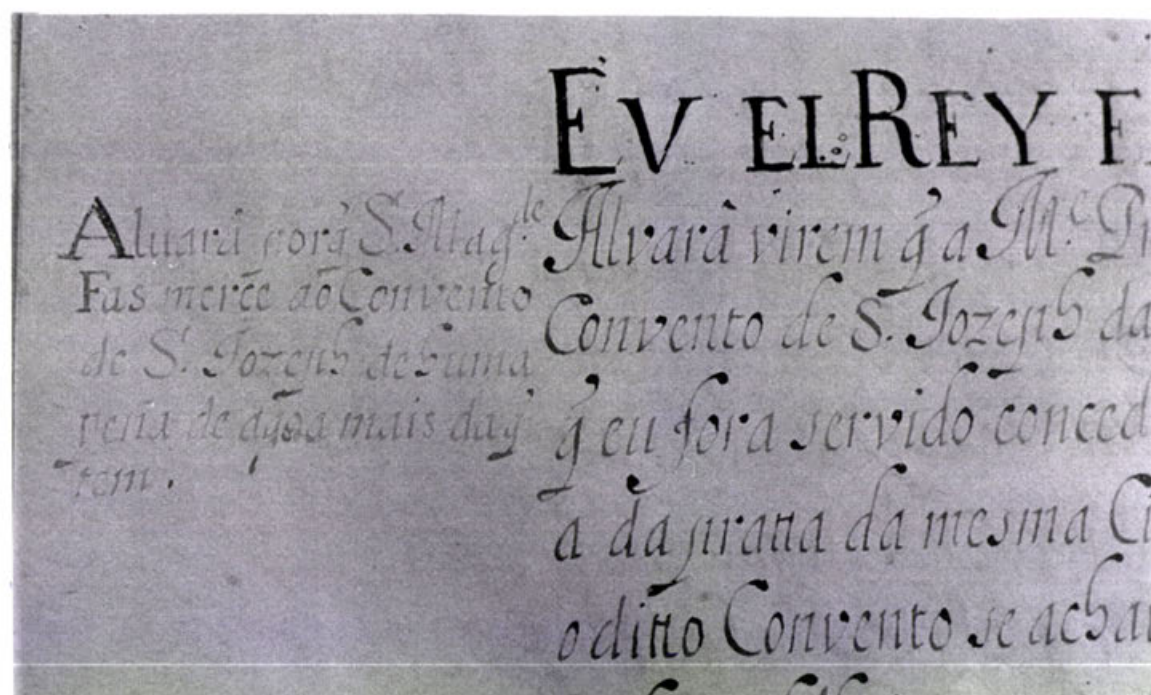 Aluarâ porq̃ S. Mag.de
Fas merce ao Convento
de S. Jozeph de huma
pena de agoa mais da q̃
tem.
EV EL REY F
Alvarâ virem q̃ a M.e Pr
Convento de S. Jozeph da
q̃ eu fora servido conced
a da pratta da mesma Ci
o ditto Convento se achau